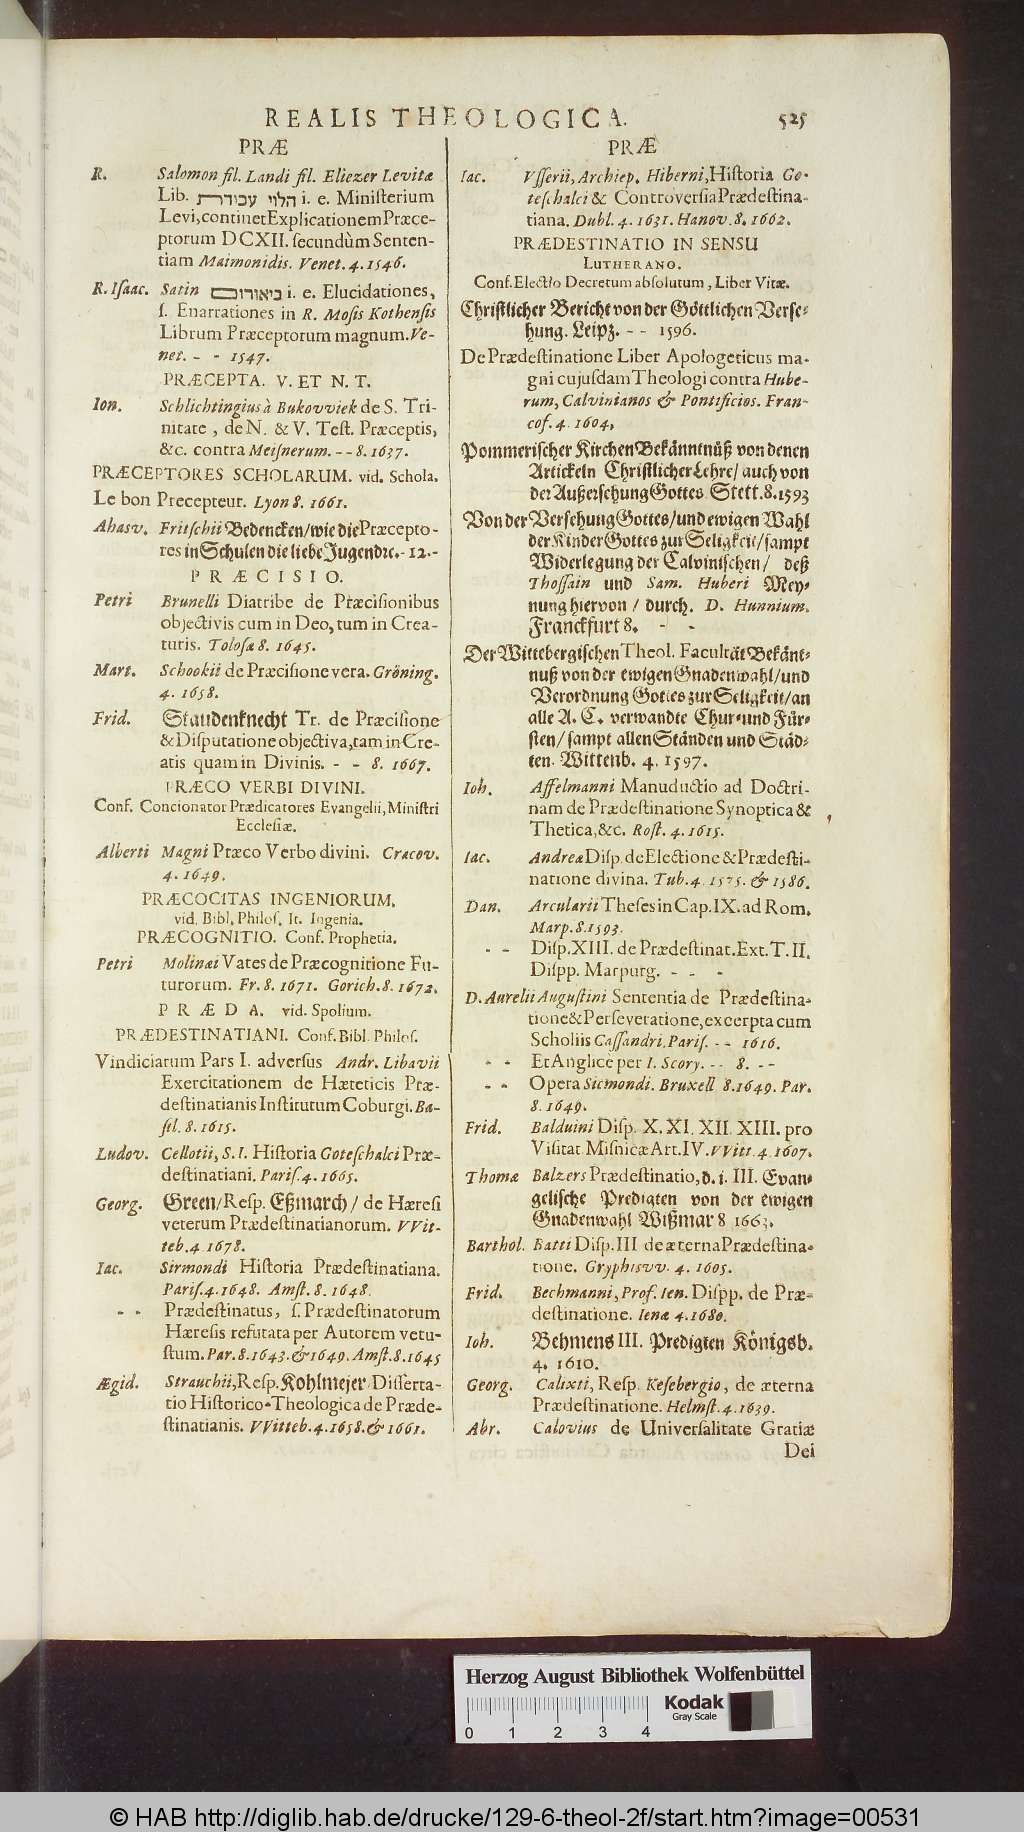 REALIS THEOLOGICA. 525
PRÆ
R. Salomon fil. Landi fil. Eliezer Levitæ
Lib. עבודת הלוי i. e. Ministerium
Levi, continet Explicationem Præce-
ptorum DCXII. secundùm Senten-
tiam Maimonidis. Venet. 4. 1546.
R. Isaac. Satin ביאורים i. e. Elucidationes,
s. Enarrationes in R. Mosis Kothensis
Librum Præceptorum magnum. Ve-
net. - - 1547.
PRÆCEPTA. V. ET N. T.
Ion. Schlichtingius à Bukovviek de S. Tri-
nitate, de N. & V. Test. Præceptis,
&c. contra Meisnerum. - - 8. 1637.
PRÆCEPTORES SCHOLARUM. vid. Schola.
Le bon Precepteur. Lyon 8. 1661.
Ahasv. Fritschii Bedencken/ wie die Præcepto-
res in Schulen die liebe Jugend rc. - 12. -
PRÆCISIO.
Petri Brunelli Diatribe de Præcisionibus
objectivis cum in Deo, tum in Crea-
turis. Tolosæ 8. 1645.
Mart. Schookii de Præcisione vera. Gröning.
4. 1658.
Frid. Staudenknecht Tr. de Præcisione
& Disputatione objectiva, tam in Cre-
atis quam in Divinis. - - 8. 1667.
PRÆCO VERBI DIVINI.
Conf. Concionator Prædicatores Evangelii, Ministri
Ecclesiæ.
Alberti Magni Præco Verbo divini. Cracov.
4. 1649.
PRÆCOCITAS INGENIORUM.
vid. Bibl. Philos. It. Ingenia.
PRÆCOGNITIO. Conf. Prophetia.
Petri Molinæi Vates de Præcognitione Fu-
turorum. Fr. 8. 1671. Gorich. 8. 1672.
PRÆDA. vid. Spolium.
PRÆDESTINATIANI. Conf. Bibl. Philos.
Vindiciarum Pars I. adversus Andr. Libavii
Exercitationem de Hæreticis Præ-
destinatianis Institutum Coburgi. Ba-
sil. 8. 1615.
Ludov. Cellotii, S. I. Historia Goteschalci Præ-
destinatiani. Paris. 4. 1665.
Georg. Green/ Resp. Eßmarch/ de Hæresi
veterum Prædestinatianorum. VVit-
teb. 4 1678.
Iac. Sirmondi Historia Prædestinatiana.
Paris. 4. 1648. Amst. 8. 1648.
- - Prædestinatus, s. Prædestinatorum
Hæresis refutata per Autorem vetu-
stum. Par. 8. 1643. & 1649. Amst. 8. 1645
Ægid. Strauchii, Resp. Kohlmejer Disserta-
tio Historico-Theologica de Præde-
stinatianis. VVitteb. 4. 1658. & 1661.
PRÆ
Iac. Vsserii, Archiep. Hiberni, Historia Go-
teschalci & Controversia Prædestina-
tiana. Dubl. 4. 1631. Hanov. 8. 1662.
PRÆDESTINATIO IN SENSU
LUTHERANO.
Conf. Electio Decretum absolutum, Liber Vitæ.
Christlicher Bericht von der Göttlichen Verse-
hung. Leipz. - - 1596.
De Prædestinatione Liber Apologeticus ma-
gni cujusdam Theologi contra Hube-
rum, Calvinianos & Pontificios. Fran-
cof. 4. 1604.
Pommerischer Kirchen Bekänntnüß von denen
Artickeln Christlicher Lehre/ auch von
der Außersehung Gottes. Stett. 8. 1593
Von der Versehung Gottes/ und ewigen Wahl
der Kinder Gottes zur Seligkeit/ sampt
Widerlegung der Calvinischen/ deß
Thossain und Sam. Huberi Mey-
nung hiervon/ durch. D. Hunnium.
Franckfurt 8. - -
Der Wittebergischen Theol. Facultät Bekänt-
nuß von der ewigen Gnadenwahl/ und
Verordnung Gottes zur Seligkeit/ an
alle A. C. verwandte Chur- und Für-
sten/ sampt allen Ständen und Städ-
ten. Wittenb. 4. 1597.
Ioh. Affelmanni Manuductio ad Doctri-
nam de Prædestinatione Synoptica &
Thetica, &c. Rost. 4. 1615.
Iac. Andreæ Disp. de Electione & Prædesti-
natione divina. Tub. 4. 1575. & 1586.
Dan. Arcularii Theses in Cap. IX. ad Rom.
Marp. 8. 1593.
- - Disp. XIII. de Prædestinat. Ext. T. II.
Dispp. Marpurg. - - -
D. Aurelii Augustini Sententia de Prædestina-
tione & Perseveratione, excerpta cum
Scholiis Cassandri. Paris. - - 1616.
- - Et Anglicè per I. Scory. - - 8. - -
- - Opera Sirmondi. Bruxell 8. 1649. Par.
8. 1649.
Frid. Balduini Disp. X. XI. XII. XIII. pro
Visitat Misnicæ Art. IV. VVitt. 4. 1607.
Thomæ Balzers Prædestinatio, d. i. III. Evan-
gelische Predigten von der ewigen
Gnadenwahl Wißmar 8 1663.
Barthol. Batti Disp. III de æterna Prædestina-
tione. Gryphisvv. 4. 1605.
Frid. Bechmanni, Prof. Ien. Dispp. de Præ-
destinatione. Ienæ 4. 1680.
Ioh. Behmens III. Predigten Königsb.
4. 1610.
Georg. Calixti, Resp. Kesebergio, de æterna
Prædestinatione. Helmst. 4. 1639.
Abr. Calovius de Universalitate Gratiæ
Dei
Herzog August Bibliothek Wolfenbüttel
0 1 2 3 4
Kodak
Gray Scale
© HAB http://diglib.hab.de/drucke/129-6-theol-2f/start.htm?image=00531